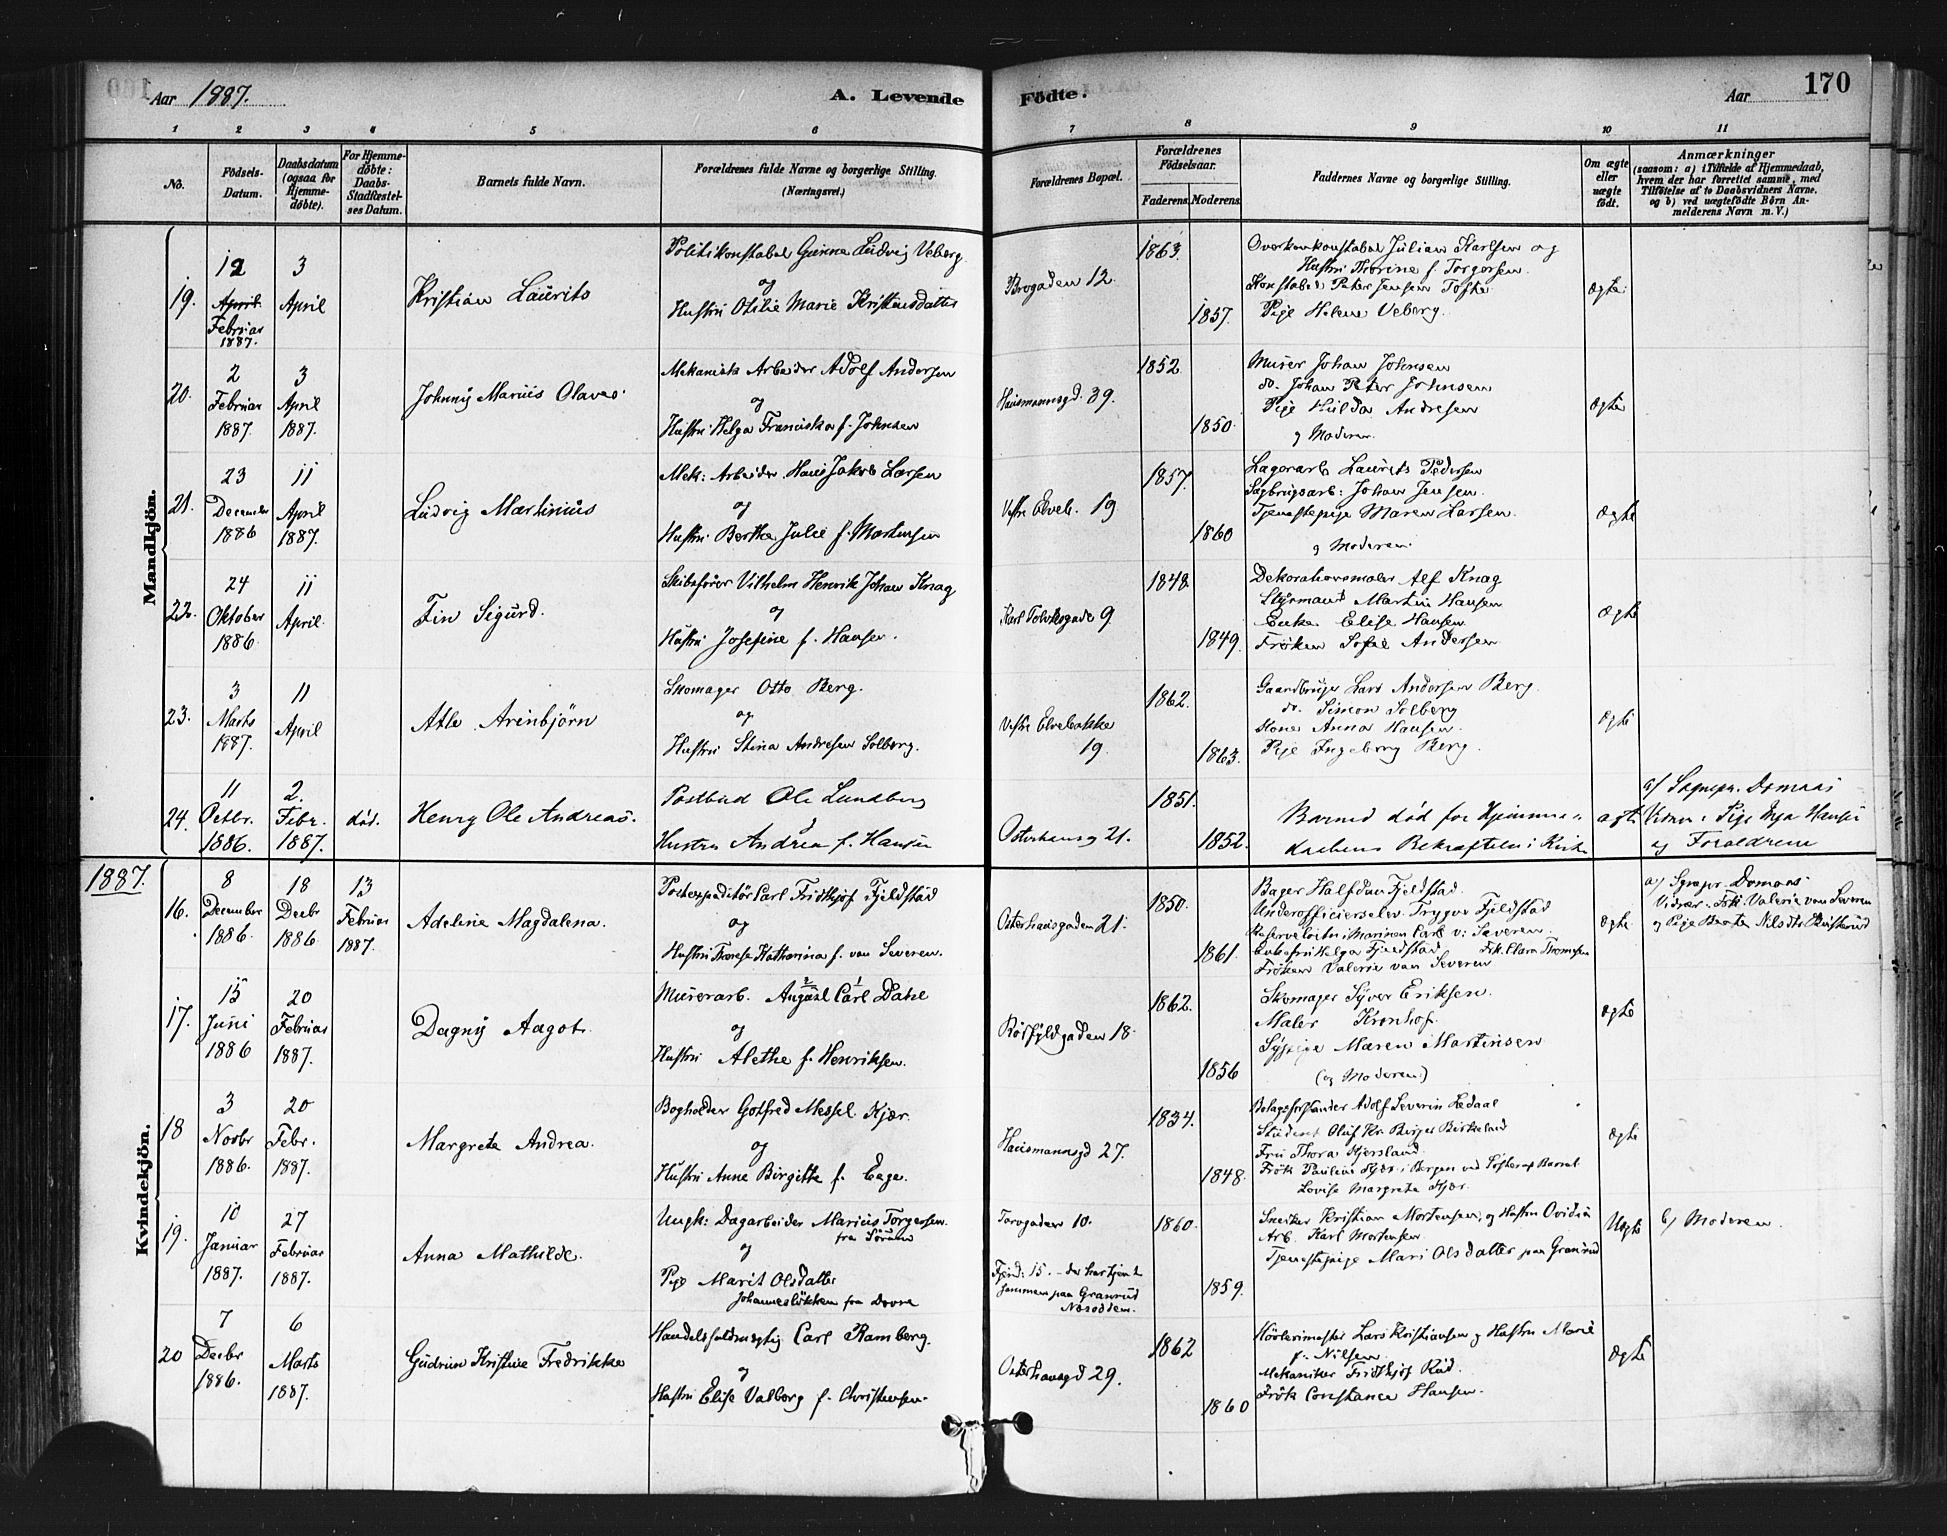 Aar 1887.
A. Levende Födte.
Aar
170
1 2 3 4 5 6 7 8 9 10 11
No.
Födsels-Datum.
Daabsdatum (ogsaa for Hjemme-döbte).
For Hjemme-döbte: Daabs-Stadfæstel-ses Datum.
Barnets fulde Navn.
Forældrenes fulde Navne og borgerlige Stilling. (Næringsvei.)
Forældrenes Bopæl.
Forældrenes Födselsaar.
Faderens. Moderens.
Faddernes Navne og borgerlige Stilling.
Om ægte eller uægte födt.
Anmærkninger
(saasom: a) i Tilfælde af Hjemmedaab, hvem der har forrettet samme, med Tilföielse af to Daabsvidners Navne, og b) ved uægtefödte Börn An-melderens Navn m. V.)
Mandkjön.
19.
12 April Februar 1887.
3 April
Kristian Laurits
Politikonstabel Gunner Ludvig Veberg
og
Hustru Otilie Marie Kristiansdatter
Brogaden 12.
1863.
1857.
Overkonstabel Julian Karlsen og
Hustru Thorine f. Torgersen.
Konstabel Peter Jensen Tofte
Pige Helene Veberg.
ægte
20.
2 Februar 1887.
3 April 1887.
Johnny Marius Olaves
Mekanisk Arbeider Adolf Andersen
og
Hustru Helga Franciska f. Johnsen
Hausmannsgd. 39.
1852
1850.
Murer Johan Johnsen
do. Johan Peter Johnsen
Pige Hulda Andresen
og Moderen.
ægte
21.
23 December 1886
11 April 1887.
Ludvig Martinius
Mek: Arbeider Hans Jakob Larsen
og
Hustru Berthe Julie f. Mortensen
Vestre Elveb. 19
1857.
1860
Lagerarb Laurits Pedersen
Sagbrugsarb: Johan Jensen.
Tjenestepige Maren Larsen.
og Moderen.
ægte
22.
24 Oktober 1886
11 April.
Fin Sigurd.
Skibsfører Vilhelm Henrik Johan Knag
og
Hustru Josefine f. Hansen.
9
1848
1849.
Dekorationsmaler Alf Knag
Styrmand Martin Hansen
Enke Elise Hansen
Frøken Sofie Andersen
ægte
23.
3 Marts 1887.
11 April
Atle Arinbjörn
Skomager Otto Berg.
og
Hustru Stina Andresen Solberg.
Vestre Elvebakke 19.
1862.
1863.
Gaardbruger Lars Andersen Berg
do. Simon Solberg
Kone Anna Hansen.
Pige Ingeborg Berg.
ægte
24.
11 Octbr. 1886.
2. Febr. 1887.
död.
Henry Ole Andreas.
Postbud Ole Lundberg
Hustru Andrea f. Hansen
Osterhausg 21.
1851.
1852.
Barnet död før Hjemme-
daabens Bekræftelse i Kirke
ægte
a/ Sognepr. Domaas
Vidner: Pige Hansen
og Forældrene
1887.
Kvindekjön.
16.
8 December 1886.
18 Decbr 1886
13 Februar 1887.
Adeline Magdalena.
Postexpeditör Carl Fridthjof Fjeldstad
og
Hustru Therese Katharina f. van Severen.
Osterhausgaden 21.
1850.
1861.
Bager Halfdan Fjeldstad.
Underofficierselev Trygve Fjeldstad
i Marinen Carl v: Severen.
Helga Fjeldstad Frk. Clara Thomesen
Frøken Valerie van Severen
ægte
a/ Sognepr. Domaas
Vidner: Frk. Valerie van Severen
og Pige
17.
15 Juni 1886
20 Februar 1887.
Dagny Aagot.
Murerarb. August Carl Dahl
og
Hustru Alethe f. Henriksen.
18.
1862.
1856
Skomager Syver Eriksen.
Maler Kronhof.
Sypige Maren Martinsen
(og Moderen)
ægte
18
3 Novbr 1886.
20 Febr. 1887.
Margrete Andrea.
Bogholder Gotfred Messel Kjær.
og
Hustru Anne Birgitte f. Eege.
Hausmannsgd 27.
1834.
1848.
Adolf Severin Hedaal
Student Oluf Kr. Birger Birkeland
Fru Thora Hjersland
Frøk Pauline Kjær i Bergen ved
Lovise Margrete Kjær.
ægte
19.
10 Januar 1887.
27 Februar 1887.
Anna Mathilde.
Ungk: Dagarbeider Marius Torgersen
fra Sörum
og
Pige Marit Olsdatter
Johannesløkken fra Dovre
Torvgaden 10.
15. – der har tjent
sammen paa Granerud
Nesodden.
1860.
1859.
Snekker Kristian Mortensen, og Hustru Ovidia
Arb. Karl Mortensen.
Tjenestepige Mari Olsdatter paa Granrud
Uægte
b/ Moderen.
20
7 Decbr 1886.
6 Marts 1887.
Gudrun Kristine Fredrikke
Handelsfuldmægtig Carl Ramberg.
og
Hustru Elise Valborg f. Christensen.
Osterhausgd 29.
1862
1860
Lars Kristiansen og Hustru Marie
f. Nilsen
Mekaniker Fridthjof Rud.
Frøk Constance Hansen.
ægte